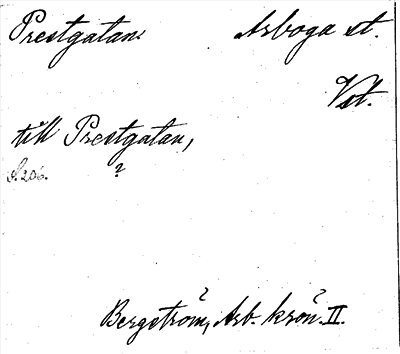 Prestgatan Arboga st.
Vst.
till Prestgatan,
S. 206. ?
Bergström, Arb. krön. II.